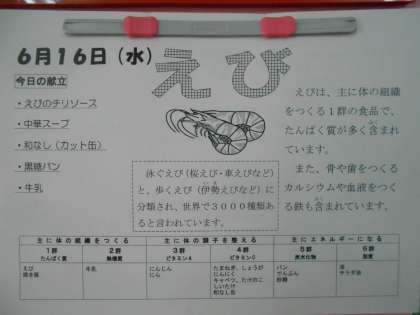 6月16日（水）
えび
今日の献立
・えびのチリソース
・中華スープ
・和なし（カット缶）
・黒糖パン
・牛乳
えびは、主に体の組織
をつくる1群の食品で、
たんぱく質が多く含まれ
ています。
また、骨や歯をつくる
カルシウムや血液をつく
る鉄も含まれています。
泳ぐえび（桜えび・車えびなど）
と、歩くえび（伊勢えびなど）に
分類され、世界で３０００種類あ
ると言われています。
主に体の組織をつくる
主に体の調子を整える
主にエネルギーになる
1群
たんぱく質
2群
無機質
3群
ビタミンA
4群
ビタミンC
5群
炭水化物
6群
脂質
えび
牛乳
にんじん
にら
たまねぎ、しょうが
にんにく
キャベツ、たけのこ
しいたけ
和なし缶
パン
でんぷん
砂糖
油